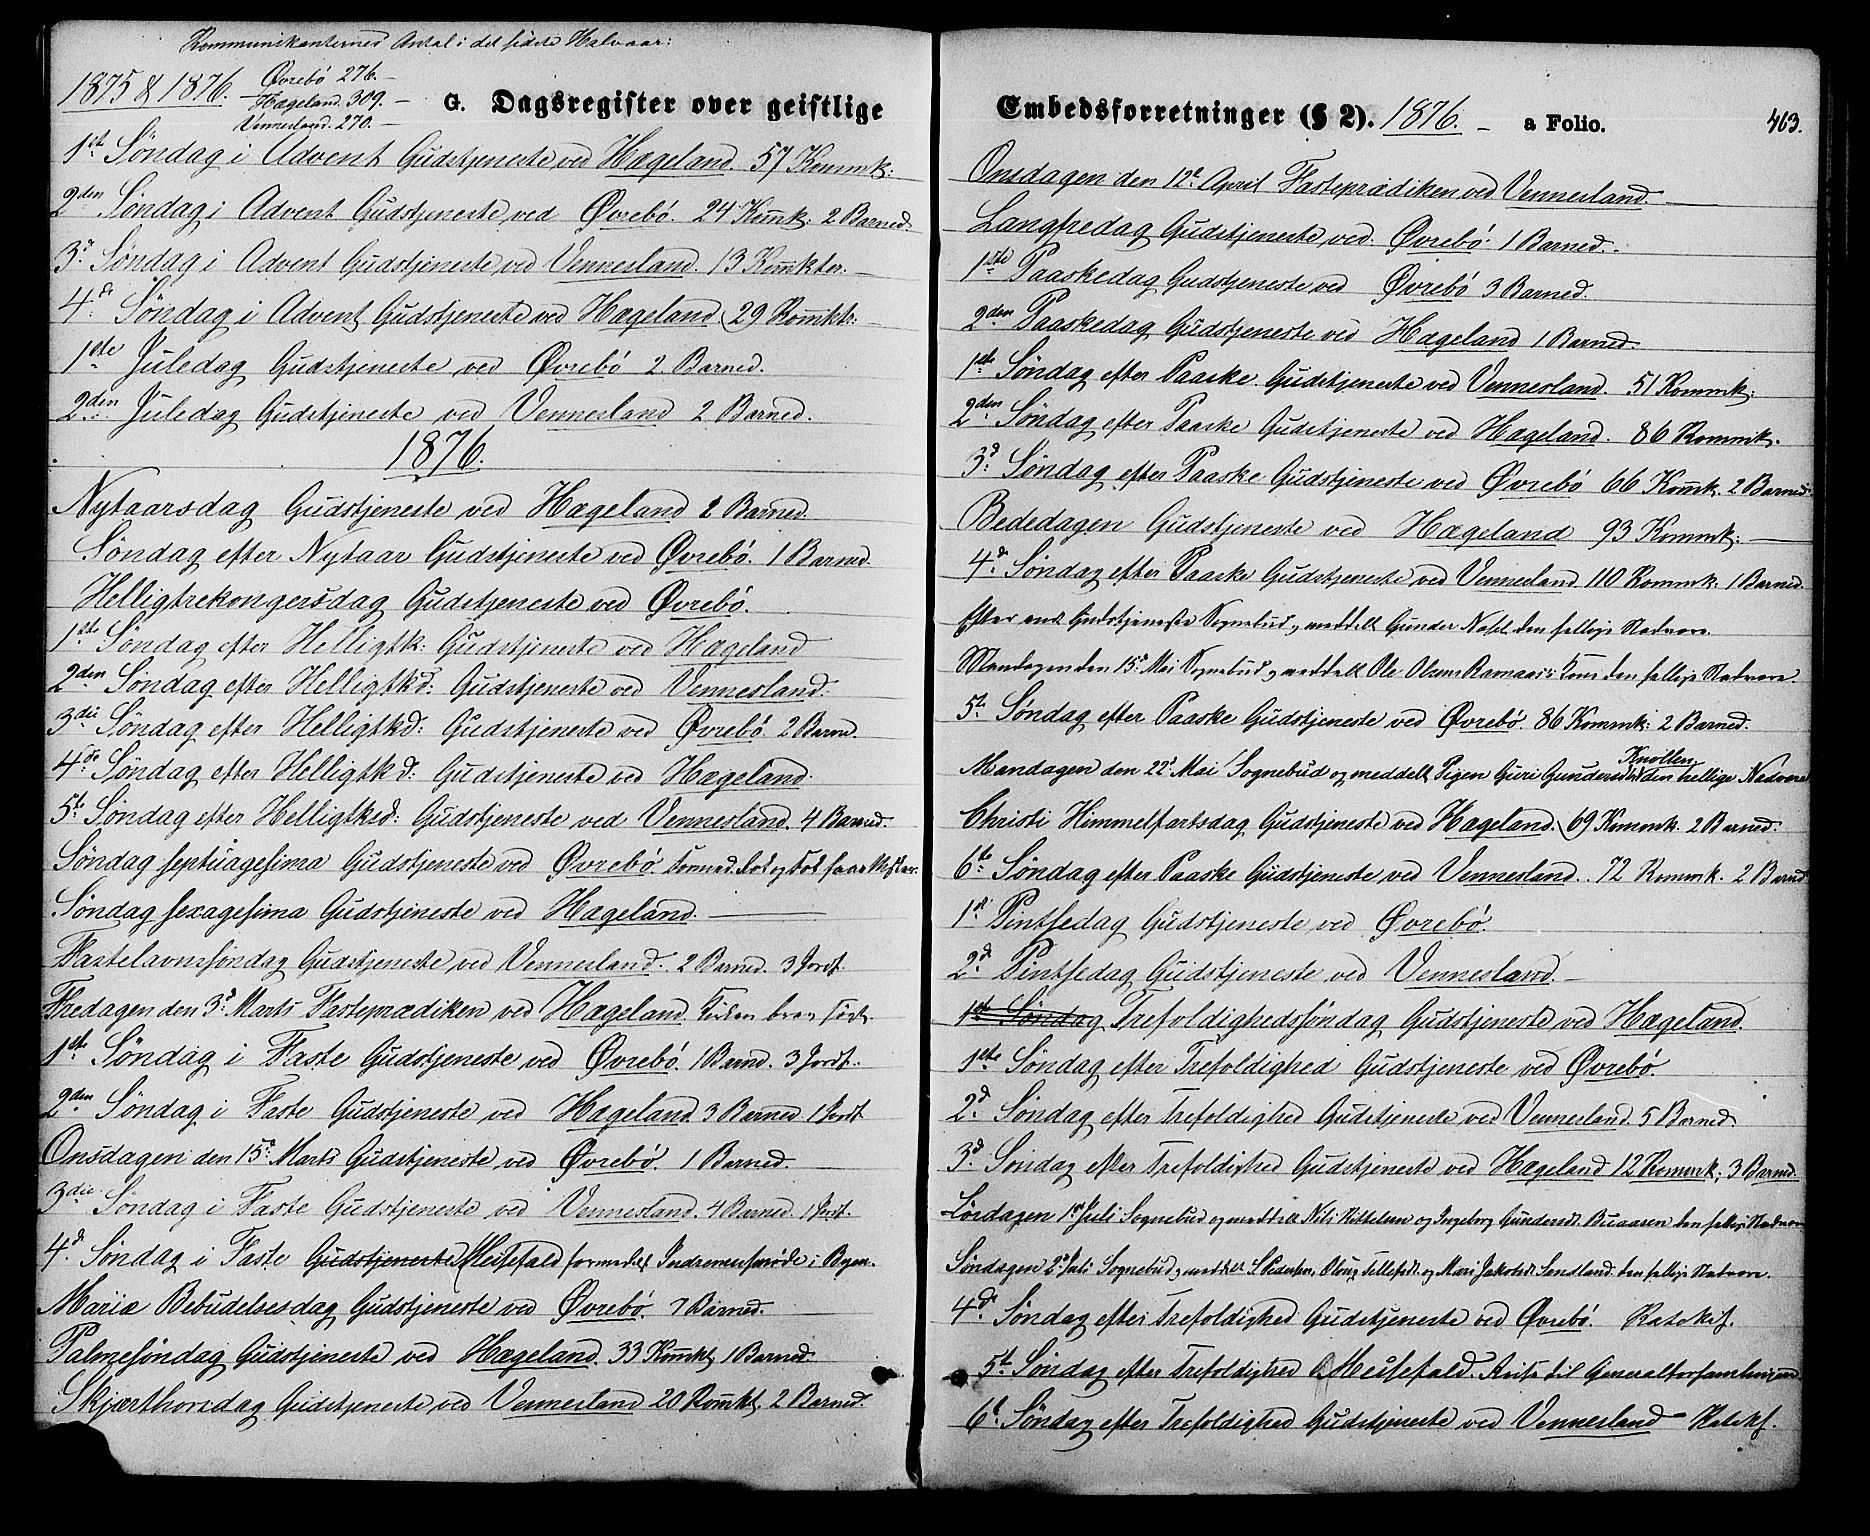 Kommunikanternes Antal i det sidste Halvaar:
1875 & 1876. Øvrebö 276.
Hægeland. 309.
Vennesland. 270.
G. Dagsregister over geistlige
1ste Søndag i Advent Gudstjeneste ved Hægeland. 57 Kommk:
2den Søndag i Advent Gudstjeneste ved Øvrebö. 24 Kommk: 2 Barned.
3d: Søndag i Advent Gudstjeneste ved Vennesland. 13 Kommkter.
4d: Søndag i Advent Gudstjeneste ved Hægeland 29 Kommkt:
1ste Juledag Gudstjeneste ved Øvrebö 2 Barned.
2den Juledag Gudstjeneste ved Vennesland 2 Barned.
1876.
Nytaarsdag Gudstjeneste ved Hægeland 2 Barned.
Søndag efter Nytaar Gudstjeneste ved Øvrebö. 1 Barned.
Helligtrekongersdag Gudstjeneste ved Øvrebö.
1ste Søndag efter Helligtk: Gudstjeneste ved Hægeland
2den Søndag efter Helligtkd: Gudstjeneste ved Vennesland.
3die Søndag efter Helligtkd: Gudstjeneste ved Øvrebö. 2 Barne.
4de Søndag efter Helligtkd: Gudstjeneste ved Hægeland.
5te Søndag efter Helligtkd: Gudstjeneste ved Vennesland. 4 Barned.
Søndag septuagesima Gudstjeneste ved Øvrebö.
Søndag sexagesima Gudstjeneste ved Hægeland.
Fastelavnssøndag Gudstjeneste ved Vennesland. 2 Barned. 3 Jordf.
Fredagen den 3d: Marts Fasteprædiken ved Hægeland.
1ste Søndag i Faste Gudstjeneste ved Øvrebö. 1 Barnd. 3 Jordf.
2den Søndag i Faste Gudstjeneste ved Hægeland. 3 Barned 1 Jordf
Onsdagen den 15d: Marts Gudstjeneste ved Øvrebö. 1 Barned.
3die Søndag i Faste Gudstjeneste ved Vennesland. 4 Barned. 1 Jordf.
4d: Søndag i Faste Gudstjeneste Messefald formedelst i Byen.
Mariæ Bebudelsesdag Gudstjeneste ved Øvrebö. 7 Barned.
Palmesøndag Gudstjeneste ved Hægeland. 33 Kommkt. 1 Barned.
Skjærthorsdag Gudstjeneste ved Vennesland 20 Kommkt. 2 Barned.
Embedsforretninger (§ 2). 1876. a Folio. 463.
Onsdagen den 12te April Fasteprædiken ved Vennesland.
Langfredag Gudstjeneste ved Øvrebö. 1 Barned.
1ste Paaskedag Gudstjeneste ved Øvrebö 3 Barned.
2den Paaskedag Gudstjeneste ved Hægeland 1 Barned.
1ste Søndag efter Paaske Gudstjeneste ved Vennesland. 51 Kommk:
2den Søndag efter Paaske Gudstjeneste ved Hægeland. 86 Kommk.
3d: Søndag efter Paaske Gudstjeneste ved Øvrebö 66 Kommk. 2 Barned.
Bededagen Gudstjeneste ved Hægeland 93 Kommk:
4d: Søndag efter Paaske Gudstjeneste ved Vennesland 110 Kommk. 1 Barned.
Efter endt Gudstjeneste Sognebud og meddelt Gunder den hellige Nadvere.
Mandagen den 15d Mai Sognebud og meddelt Ole Olsen Kone den hellige Nadvere.
5te Søndag efter Paaske Gudstjeneste ved Øvrebö. 86 Kommk: 2 Barned.
Knollen
Mandagen den 22d Mai Sognebud og meddelt Pigen Guri Gundersd. den hellige Nadvere
Christi Himmelfartsdag Gudstjeneste ved Hægeland. 69 Kommk. 2 Barned.
6te Søndag efter Paaske Gudstjeneste ved Vennesland. 72 Kommk. 2 Barned
1st Pintsedag Gudstjeneste ved Øvrebö.
2d Pintsedag Gudstjeneste ved Vennesland.
1ste Søndag Trefoldighedssøndag Gudstjeneste ved Hægeland.
1ste Søndag efter Trefoldighed Gudstjeneste ved Øvrebö.
2d: Søndag efter Trefoldighed Gudstjeneste ved Vennesland. 5 Barned.
3d: Søndag efter Trefoldighed Gudstjeneste ved Hægeland 12 Kommk; 3 Barned.
Lördagen 1st Juli Sognebud og meddelt Nils Kittelsen og Ingeborg Gundersdt. Buaasen den hellige Nadvere
Søndagen 2d Juli Sognebud og meddelt og Mari Jakobsdt. den hellige Nadvere.
4de Søndag efter Trefoldighed Gudstjeneste ved Øvrebö. Katekis.
5te Søndag efter Trefoldighed Messefald. Reise til Generalforsamlingen
6te Søndag efter Trefoldighed Gudstjeneste ved Vennesland Katekis.